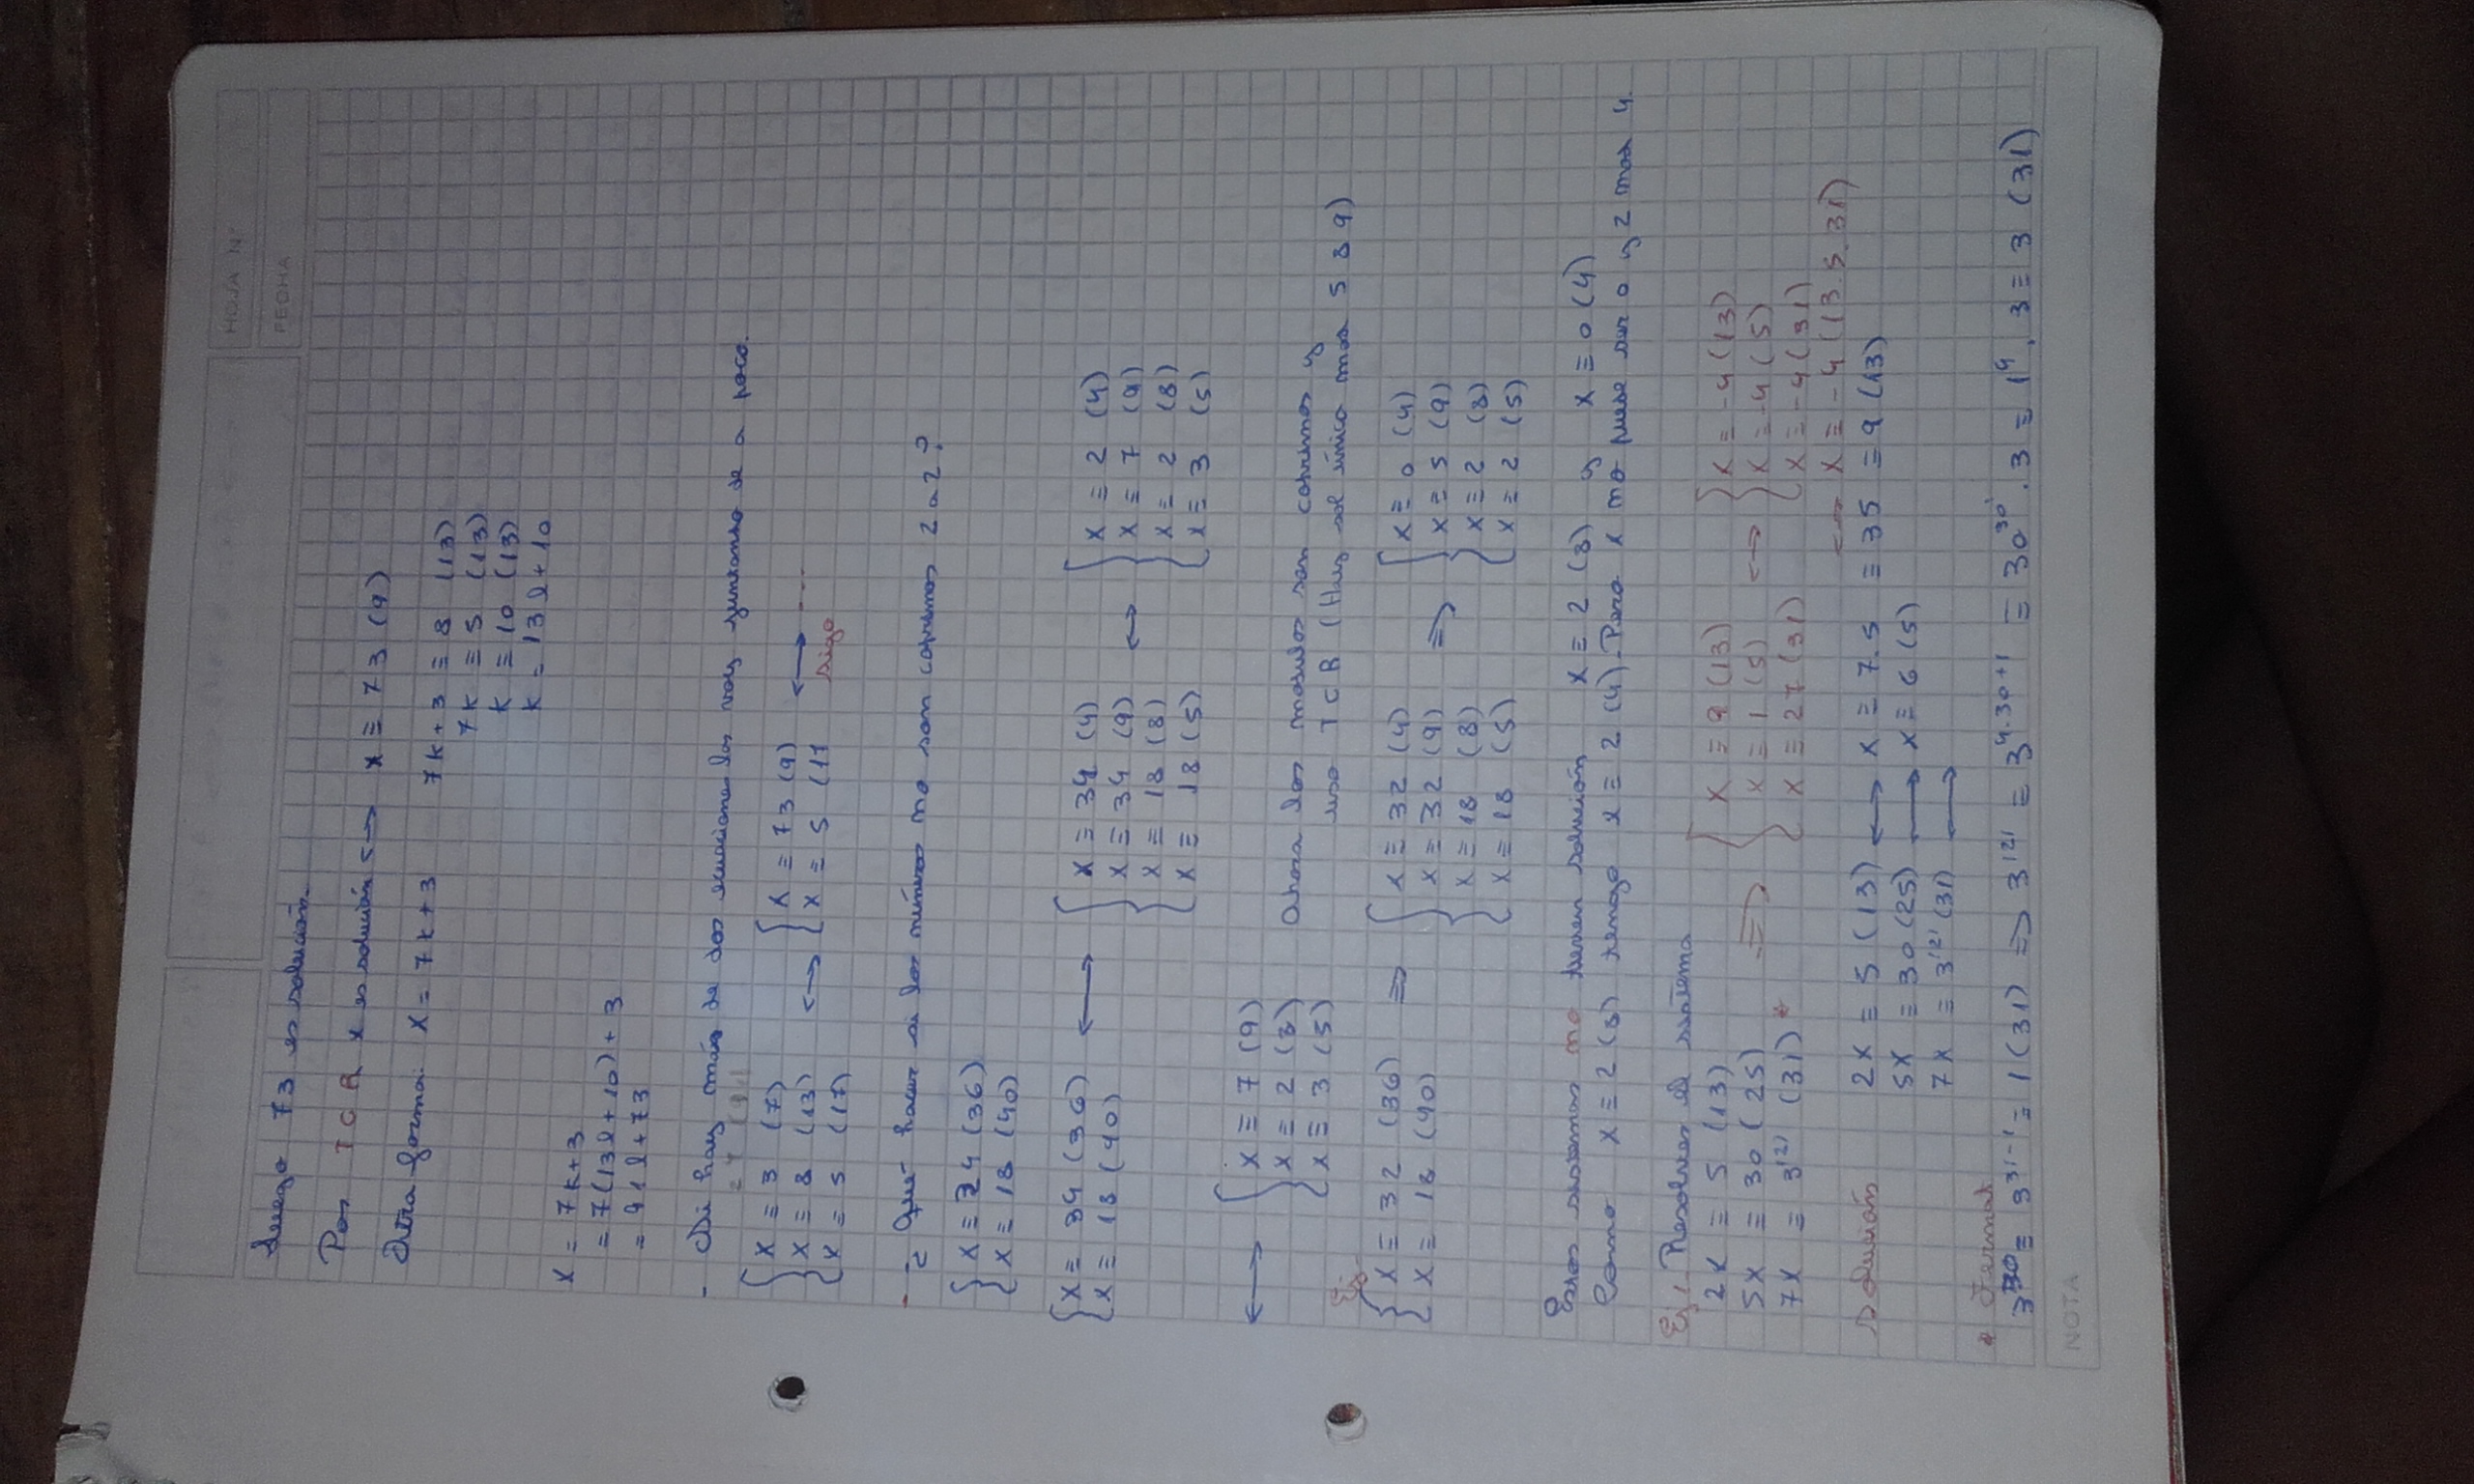 HOJA N°
FECHA
Luego 73 es solución.
Por TCR x es solución ↔ x ≡ 73 (9)
Otra forma: x = 7k+3 7k+3 ≡ 8 (13)
7k ≡ 5 (13)
k ≡ 10 (13)
k = 13l+10
x = 7k+3
= 7(13l+10)+3
= 91l+73
- Si hay más de dos ecuaciones las voy juntando de a poco.
x ≡ 3 (7)
x ≡ 8 (13)
x ≡ 5 (17)
↔ x ≡ 73 (9)
x ≡ 5 (17
↔ ...
sigo
- ¿Qué hacer si los números no son coprimos 2 a 2?
x ≡ 24 (36)
x ≡ 18 (40)
x ≡ 34 (36)
x ≡ 18 (40)
↔ x ≡ 34 (4)
x ≡ 34 (9)
x ≡ 18 (8)
x ≡ 18 (5)
↔ x ≡ 2 (4)
x ≡ 7 (9)
x ≡ 2 (8)
x ≡ 3 (5)
↔ x ≡ 7 (9)
x ≡ 2 (8)
x ≡ 3 (5)
Ahora los modulos son coprimos y
uso TCR (Hay sol única mod 5 8 9)
Ej.
x ≡ 32 (36)
x ≡ 18 (40)
⇒ x ≡ 32 (4)
x ≡ 32 (9)
x ≡ 18 (8)
x ≡ 18 (5)
⇒ x ≡ 0 (4)
x ≡ 5 (9)
x ≡ 2 (8)
x ≡ 2 (5)
Estos sistemas no tienen solución x ≡ 2 (8) y x ≡ 0 (4)
Como x ≡ 2 (8) tengo x ≡ 2 (4). Pero x no puede ser 0 y 2 mod 4.
Ej 1. Resolver el sistema
2x ≡ 5 (13)
5x ≡ 30 (25)
7x ≡ 3¹²¹ (31) *
⇒ x ≡ 9 (13)
x ≡ 1 (5)
x ≡ 27 (31)
↔ x ≡ -4 (13)
x ≡ -4 (5)
x ≡ -4 (31)
↔ x ≡ -4 (13.5.31)
Solución 2x ≡ 5 (13) ↔ x ≡ 7.5 ≡ 35 ≡ 9 (13)
5x ≡ 30 (25) ↔ x ≡ 6 (5)
7x ≡ 3¹²¹ (31) ↔
* Fermat
3³⁰ ≡ 3³¹⁻¹ ≡ 1 (31) ⇒ 3¹²¹ ≡ 3⁴·³⁰⁺¹ ≡ 30³⁰ . 3 ≡ 1⁴ . 3 ≡ 3 (31)
NOTA